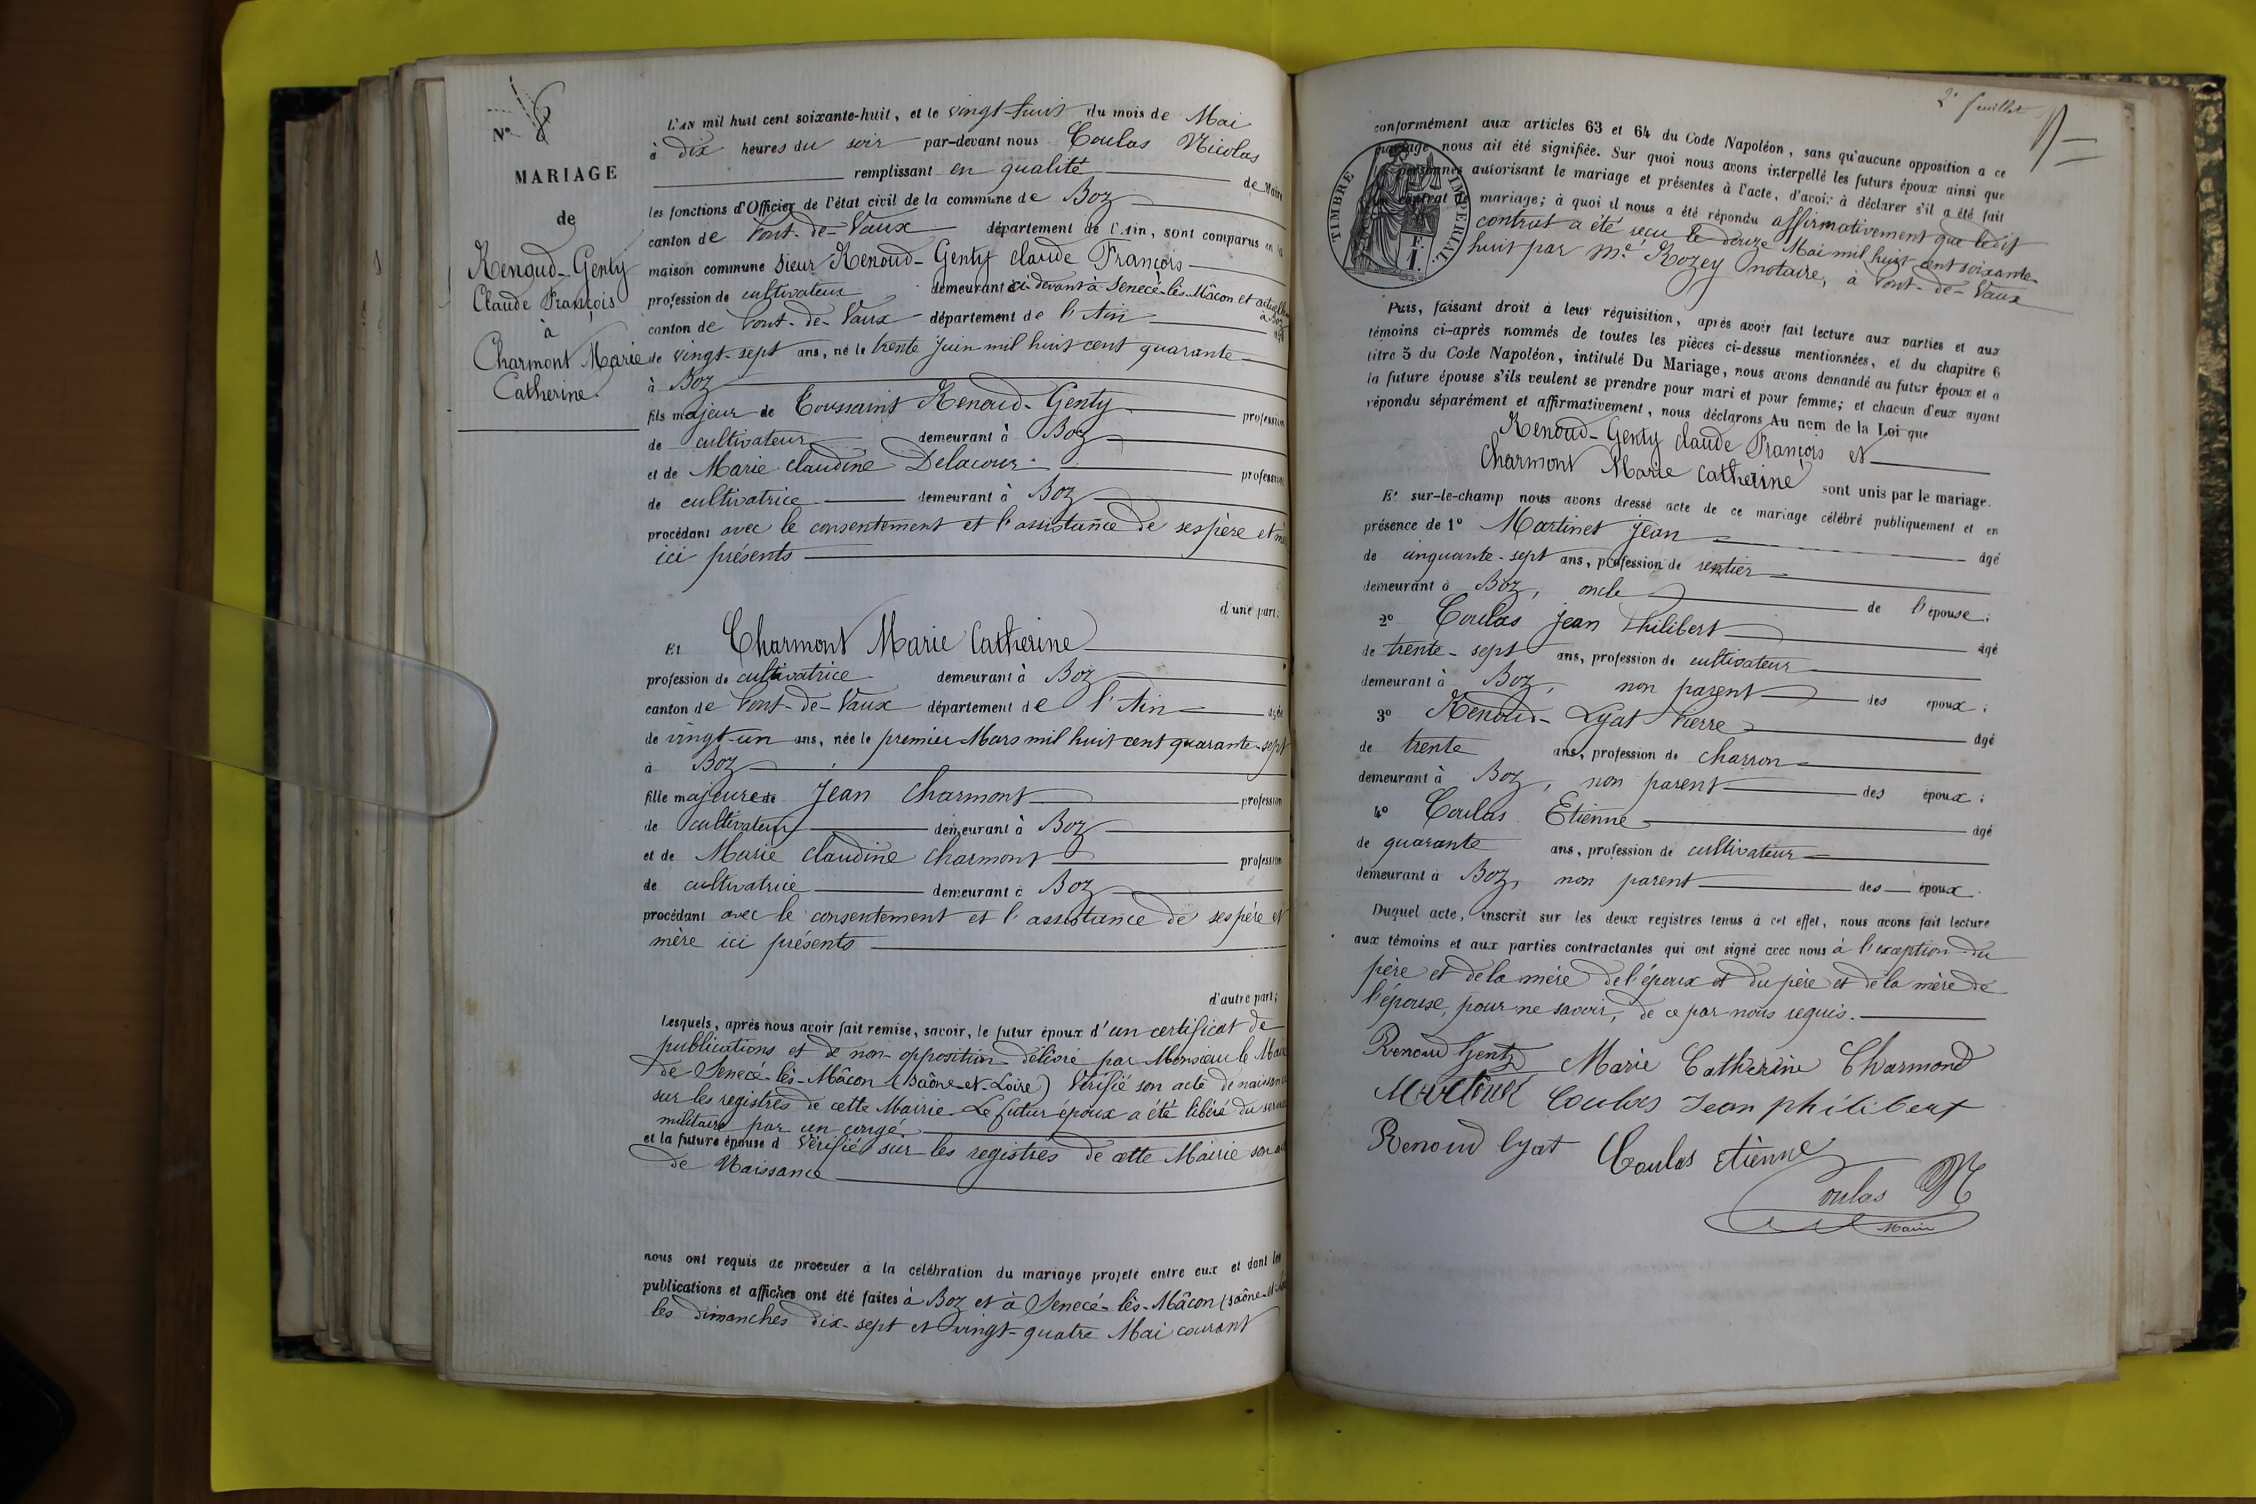 N° 8
MARIAGE
de
Renoud-Genty
Claude François
à
Charmont Marie
Catherine.
L'AN mil huit cent soixante-huit, et le vingt-huit du mois de Mai
à dix heures du soir par-devant nous Coulas Nicolas
remplissant en qualité de Maire
les fonctions d'Officier de l'état civil de la commune de Boz
canton de Pont-de-Vaux département de l'Ain, sont comparus en la
maison commune Sieur Renoud-Genty Claude François
profession de cultivateur demeurant ci-devant à Senecé-lès-Mâcon et actuellt
à Boz
canton de Pont-de-Vaux département de l'Ain âgé
de vingt-sept ans, né le trente Juin mil huit cent quarante
à Boz
fils majeur de Toussaint Renoud-Genty profession
de cultivateur demeurant à Boz
et de Marie Claudine Delacour profession
de cultivatrice demeurant à Boz
procédant avec le consentement et l'assistance de ses père et mère
ici présents
d'une part;
Et Charmont Marie Catherine
profession de cultivatrice demeurant à Boz
canton de Pont-de-Vaux département de l'Ain âgée
de vingt-un ans, née le premier Mars mil huit cent quarante-sept
à Boz
fille majeure de Jean Charmont profession
de cultivateur demeurant à Boz
et de Marie Claudine Charmont profession
de cultivatrice demeurant à Boz
procédant avec le consentement et l'assistance de ses père et
mère ici présents
d'autre part;
Lesquels, après nous avoir fait remise, savoir, le futur époux d'un certificat de
publications et de non-opposition délivré par Monsieur le Maire
de Senecé-lès-Mâcon (Saône-et-Loire) Vérifié son acte de naissance
sur les registres de cette Mairie Le futur époux a été libéré du service
militaire par un congé.
et la future épouse d Vérifié sur les registres de cette Mairie son acte
de Naissance
nous ont requis de procéder à la célébration du mariage projeté entre eux et dont les
publications et affiches ont été faites à Boz et à Senecé-lès-Mâcon (Saône-et-Loire)
les dimanches dix-sept et vingt-quatre Mai courant
2e feuillet
conformément aux articles 63 et 64 du Code Napoléon, sans qu'aucune opposition à ce
mariage nous ait été signifiée. Sur quoi nous avons interpellé les futurs époux ainsi que
personnes autorisant le mariage et présentes à l'acte, d'avoir à déclarer s'il a été fait
contrat de mariage; à quoi il nous a été répondu affirmativement que ledit
contrat a été reçu le douze Mai mil huit cent soixante-
huit par Me Rozey notaire, à Pont-de-Vaux
TIMBRE IMPERIAL
F.
1.
Puis, faisant droit à leur réquisition, après avoir fait lecture aux parties et aux
témoins ci-après nommés de toutes les pièces ci-dessus mentionnées, et du chapitre 6
titre 5 du Code Napoléon, intitulé Du Mariage, nous avons demandé au futur époux et à
la future épouse s'ils veulent se prendre pour mari et pour femme; et chacun d'eux ayant
répondu séparément et affirmativement, nous déclarons Au nom de la Loi que
Renoud-Genty Claude François et
Charmont Marie Catherine sont unis par le mariage.
Et sur-le-champ nous avons dressé acte de ce mariage célébré publiquement et en
présence de 1° Martinet Jean âgé
de cinquante-sept ans, profession de rentier
demeurant à Boz, oncle de l'épouse;
2° Coulas Jean Philibert âgé
de trente-sept ans, profession de cultivateur
demeurant à Boz, non parent des époux;
3° Renoud-Lyat Pierre âgé
de trente ans, profession de charron
demeurant à Boz, non parent des époux;
4° Coulas Etienne âgé
de quarante ans, profession de cultivateur
demeurant à Boz, non parent des époux.
Duquel acte, inscrit sur les deux registres tenus à cet effet, nous avons fait lecture
aux témoins et aux parties contractantes qui ont signé avec nous à l'exception du
père et de la mère de l'époux et du père et de la mère de
l'épouse, pour ne savoir, de ce par nous requis.
Renoud Genty Marie Catherine Charmond
Martinet Coulas Jean philibert
Renoud lyat Coulas Etienne
Coulas N
Maire